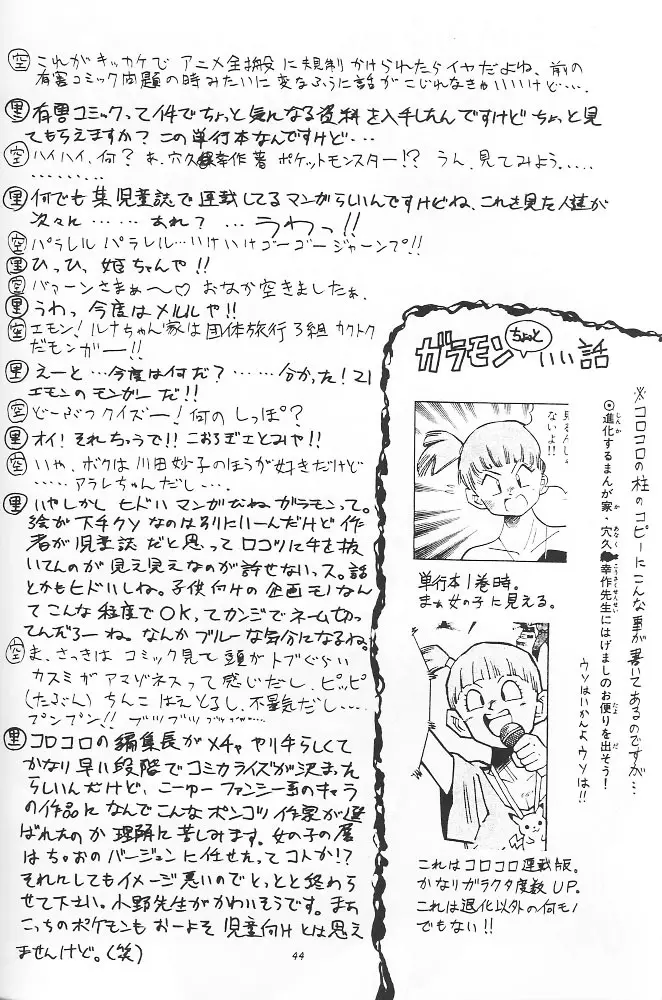 空 これがキッカケで アニメ全搬 に規制かけられたらイヤだよね、前の
有害コミック問題の時みたいに変なふうに話がこじれなきゃいいけど‥‥.
里 有害コミックって件でちょっと気になる資料を入手したんですけど ちょっと見
てもらえますか? この単行本なんですけど・・・
空 ハイハイ、何? あ、穴久保幸作著 ポケットモンスター!? うん、見てみよう.....
‥‥‥. ‥
里 何でも 某児童誌で連載してるマンガらしいんですけどね、これを見た人達が
次々に・・・ あれ? ・・・ うわっ!!
空 パラレル パラレル…いけいけゴーゴージャーンプ!!
里 ひっひ、姫ちゃんや!!
空 バァーンさまぁ〜♡ おなか空きましたぁ、
里 うわっ 今度はメルルや!!
空 エモン! ルナちゃん家は団体旅行3組 カクトク
だモンガー!!
里 えーと…今度は何だ? ‥‥‥ 分かった! 21
エモンのモンガーだ!!
空 どーぶつクイズー! 何のしっぽ?
里 オイ! それちゃうで!! こおろぎさとみや!!
空 いや、ボクは川田妙子のほうが好きだけど
‥‥‥ アラレちゃんだし‥‥
里 いやしかし ヒドいマンガだね ガラモンって。
絵が下手クソなのは別にいーんだけど作
者が児童誌だと思ってロコツに手を抜
いてんのが見え見えなのが許せないっス。話
とかもヒドいしね。子供向けの企画モノなん
てこんな程度でOK,ってカンジでネーム切っ
てんだろーね。なんかブルーな気分になるね。
空 ま、さっきは コミック見て頭がトブぐらい
カスミがアマゾネスって感じだし、ピッピ
(たぶん) ちんこ はえとるし、不景気だし‥‥
プンプン!! ブツブツ
里 コロコロの編集長がメチャやり手らしくて
かなり早い段階でコミカライズが決まった
らしいんだけど、こーゆーファンシー系のキャラ
の作品になんでこんなポンコツ作家が選
ばれたのか理解に苦しみます。女の子の層
はちゃおのバージョンに任せたってコトか!?
それにしてもイメージ悪いのでとっとと終わら
せて下さい。小野先生がかわいそうです。まぁ
こっちのポケモンも およそ児童向けとは思え
ませんけど。(笑)
ガラモン ちょっと いい話
※コロコロの柱のコピーにこんな事が書いてあるのですが…
◎進化するまんが家・穴久保幸作先生にはげましのお便りを出そう!
ウソはいかんよウソは!!
見るんじゃ
ないよ!!
単行本1巻時。
まだ女の子に見える。
これはコロコロ連載版。
かなりガラクタ度数UP。
これは退化以外の何モノ
でもない!!
44